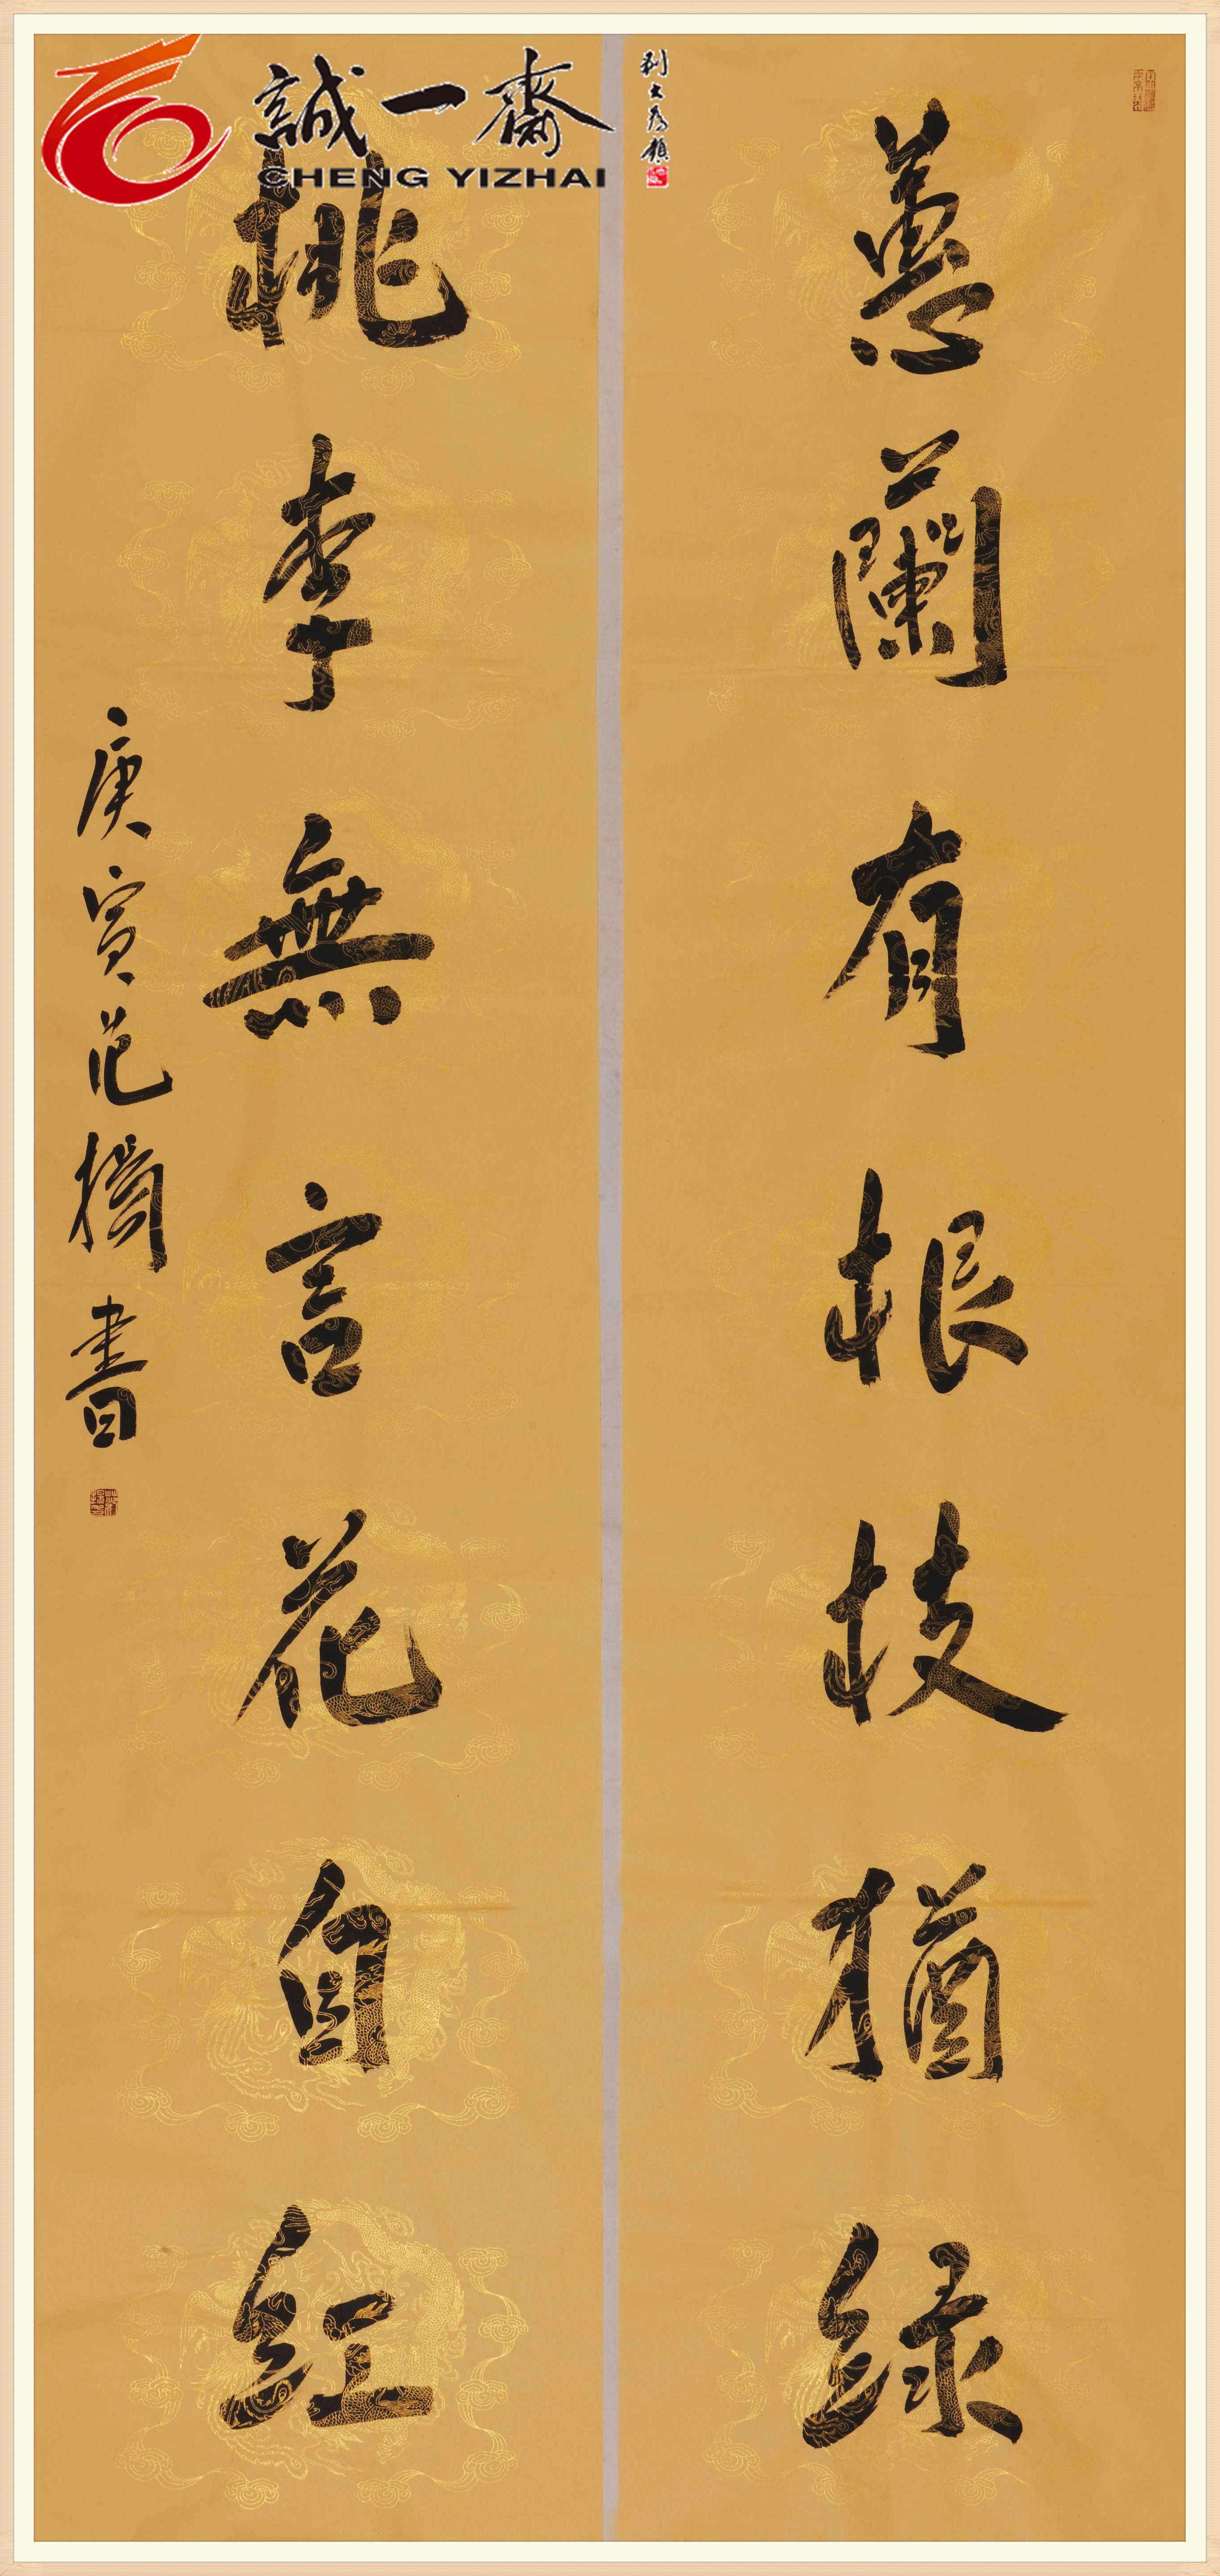 誠一齋
CHENG YIZHAI
蕙蘭有根枝猶綠
桃李無言花自紅
庚寅范揚書